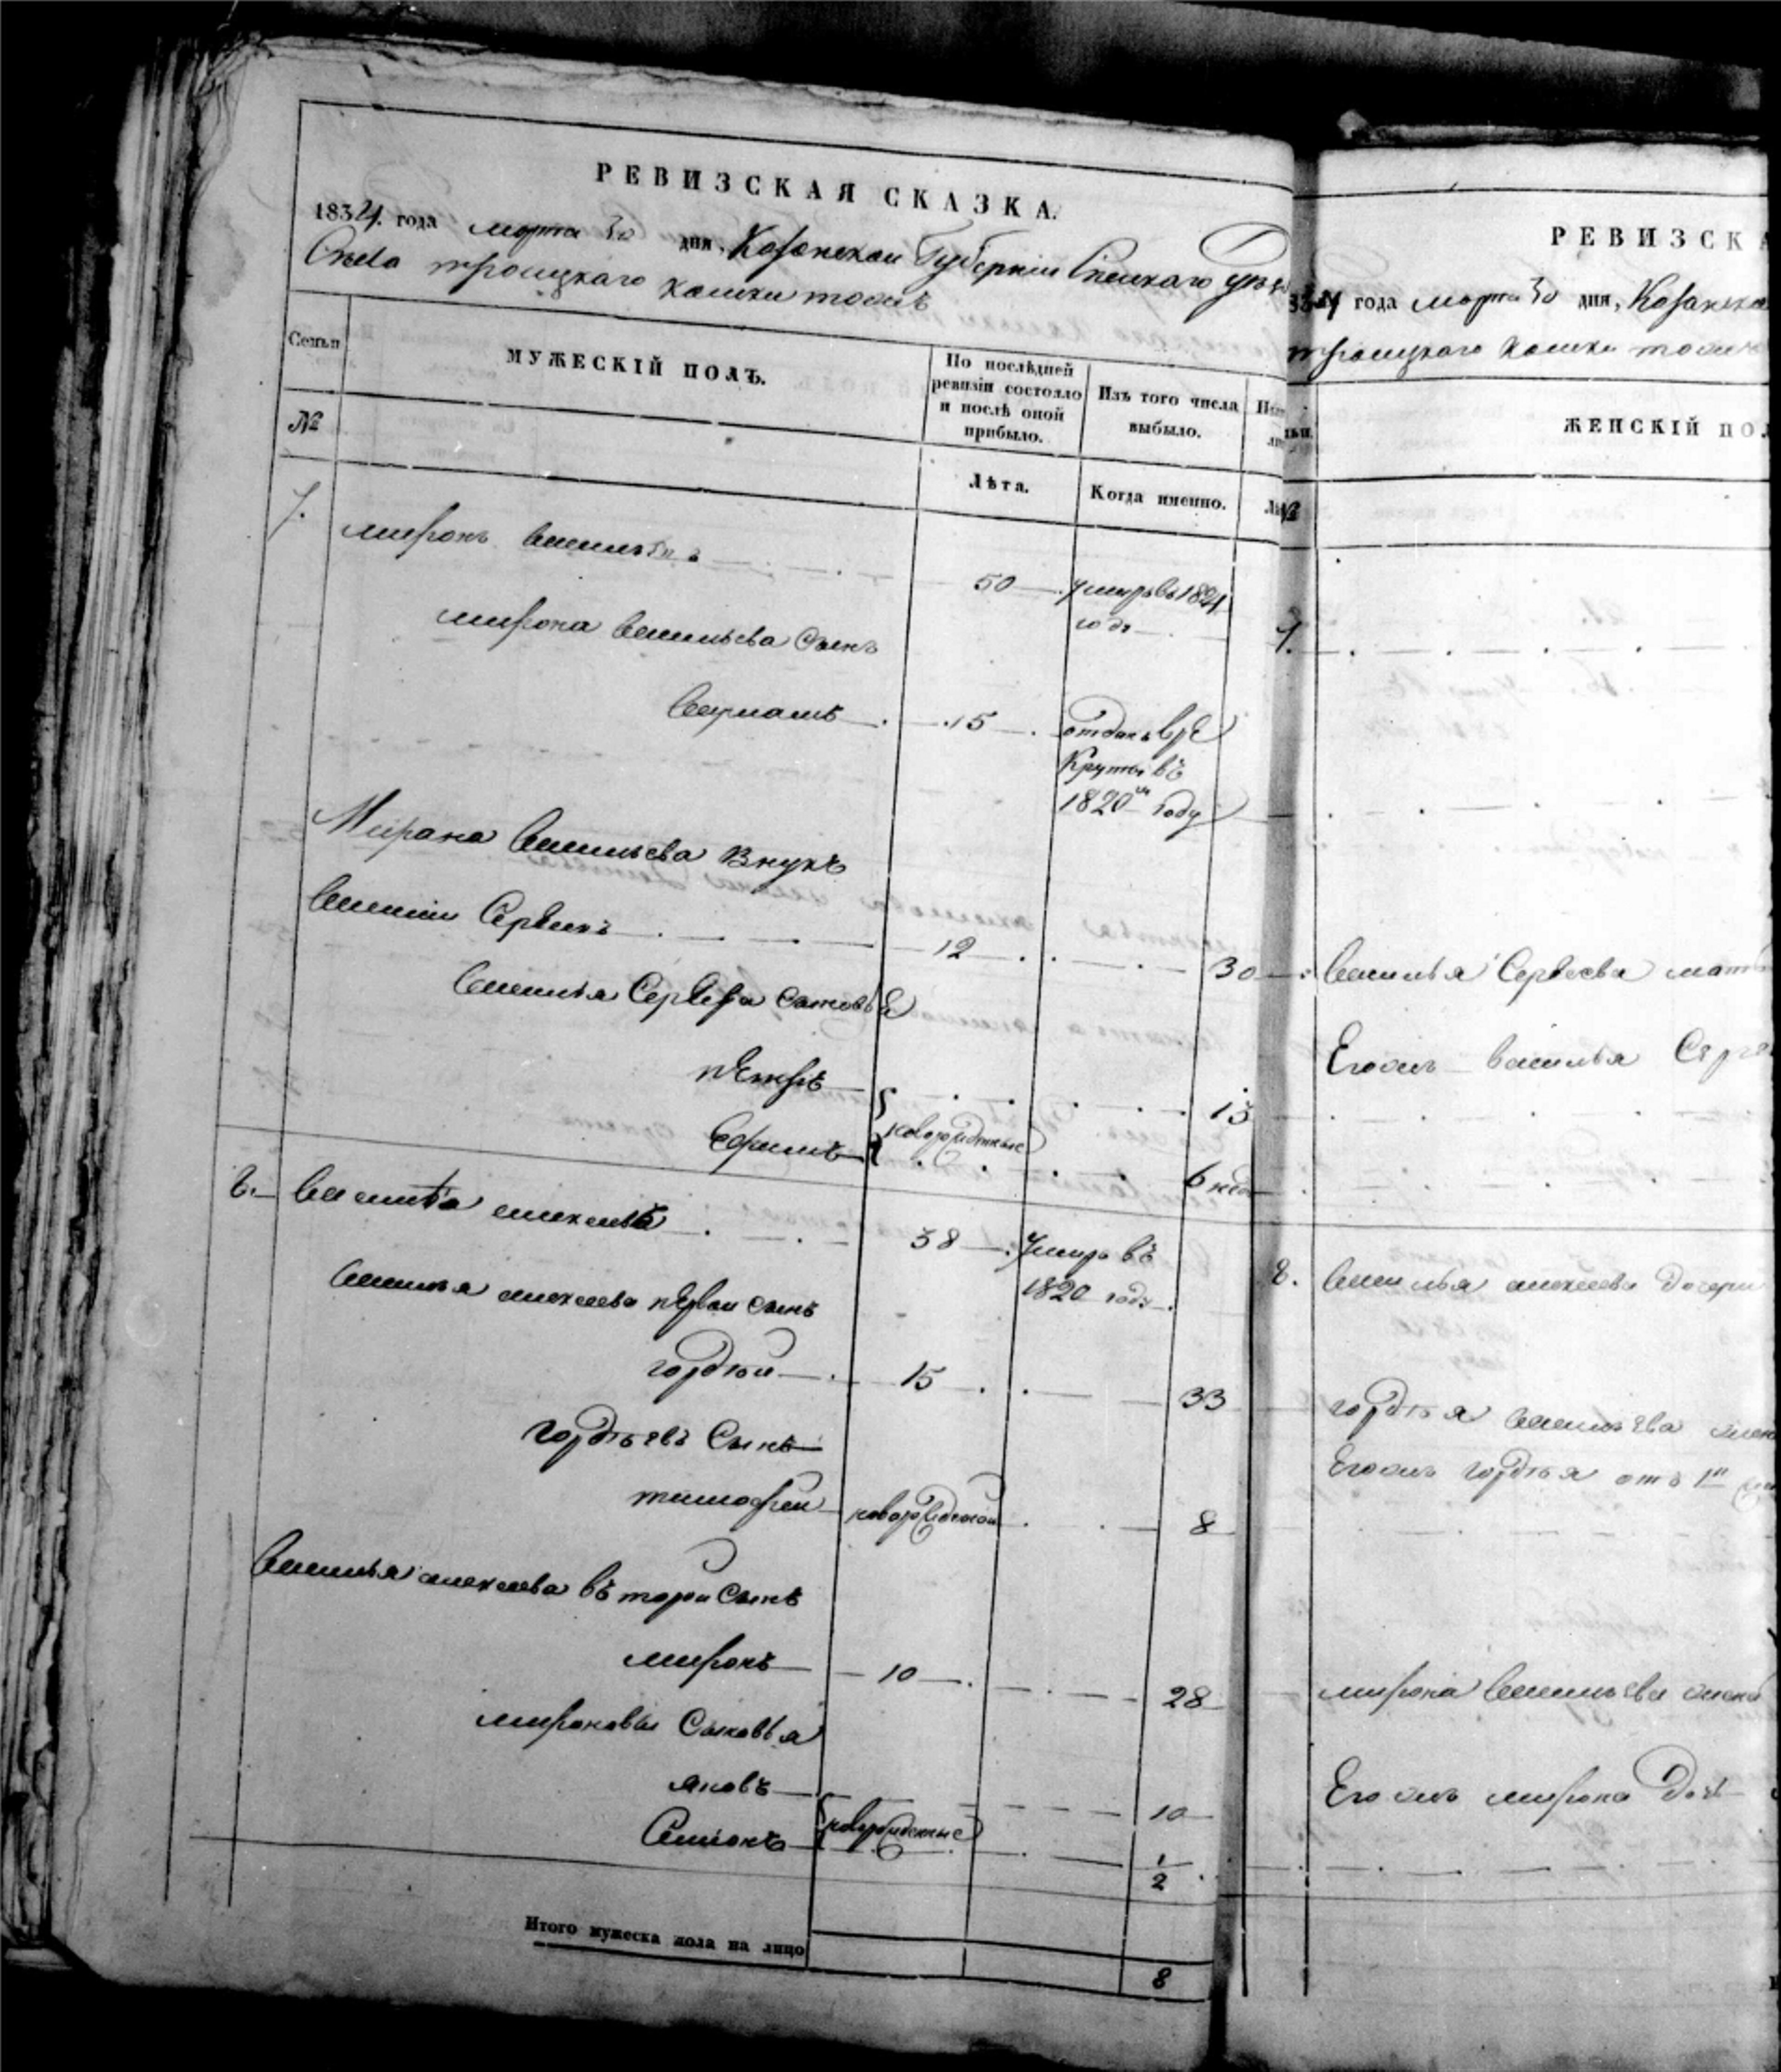 РЕВИЗСКАЯ СКАЗКА.
1834. года марта 30 дня, Казанской Губернiи Спаскаго уѣзд
Села троицкаго
Семьи
МУЖЕСКIЙ ПОЛЪ.
По послѣдней ревизiи состояло и послѣ оной прибыло.
Изъ того числа выбыло.
№
Лѣта.
Когда именно.
7. миронъ васильевъ 50 умеръ въ 1824 годѣ
мирона васильева сынъ
варламъ 15 отданъ в ре
круты въ
1820м году
Мирона васильева внукъ
василiи Сергеевъ 12 30
василья Сергеева сыновья
петръ 13
ефимъ новорожденные 6 нед
8. василеи алексеевъ 38 умеръ въ
1820 годѣ
василья алексеева первои сынъ
гордѣи 15 33
гордѣевъ сынъ
тимофеи новорожденои 8
василья алексеева въторои сынъ
миронъ 10 28
мироновы сыновья
яковъ 10
Семионъ новорожденные 1/2
Итого мужеска пола на лицо 8
РЕВИЗСКА
34 года марта 30 дня, Казанско
троицкаго
ЖЕНСКIЙ ПОЛ
№
7.
василья Сергеева мать
Егожъ василья Серге
8. василья алексеева дочери
гордѣя васильева жен
Егожъ гордѣя отъ 1й
мирона васильева жена
Егожъ мирона дочь